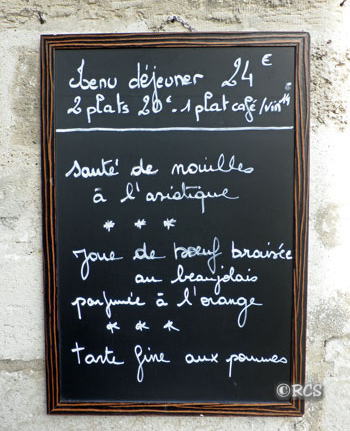 Menu déjeuner 24€
2 plats 20€ - 1 plat café/vin 14
sauté de nouilles
à l'asiatique
* * *
Joue de bœuf braisée
au beaujolais
parfumée à l'orange
* * *
tarte fine aux pommes
©RCS